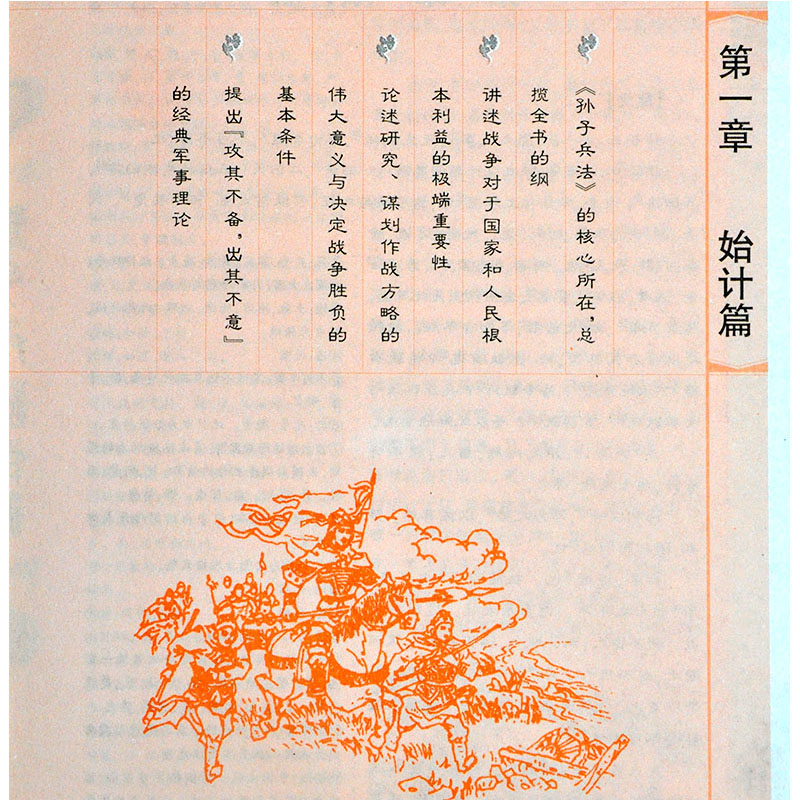 第一章 始计篇
《孙子兵法》的核心所在，总
揽全书的纲
讲述战争对于国家和人民根
本利益的极端重要性
论述研究、谋划作战方略的
伟大意义与决定战争胜负的
基本条件
提出『攻其不备，出其不意』
的经典军事理论